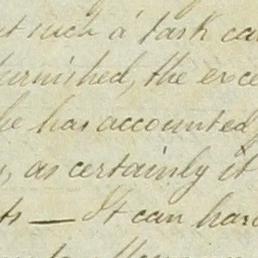 such a task ca
furnished, the exce
he has accounted
, as certainly it
ts — It can har